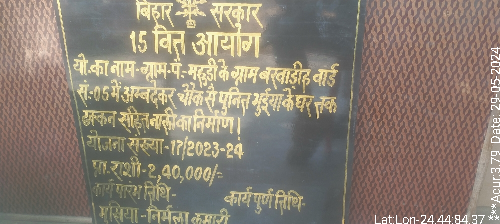 बिहार सरकार
15 वित्त आयोग
यो. का नाम- ग्राम- पं.- महुडी के ग्राम बरवाडीह वार्ड
सं-05 में अम्बेदकर चौक से पुनित भुईया के घर तक
ढक्कन सहित नाली का निर्माण!
योजना संख्या- 17/2023-24
प्रा. राशी- 2,40,000/-
कार्य प्रारम्भ तिथि- कार्य पुर्ण तिथि-
मुखिया- निर्मला कुमारी
Date: 29-05-2024
Lat Lon- 24.44:84.37